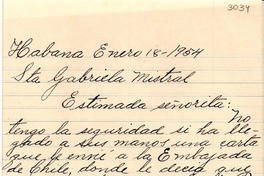 3034
Habana Enero 18-1954
Sta Gabriela Mistral
Estimada señorita:
No
tengo la seguridad si ha lle-
gado a sus manos una carta
que le envié a la Embajada
de Chile, donde le decía que